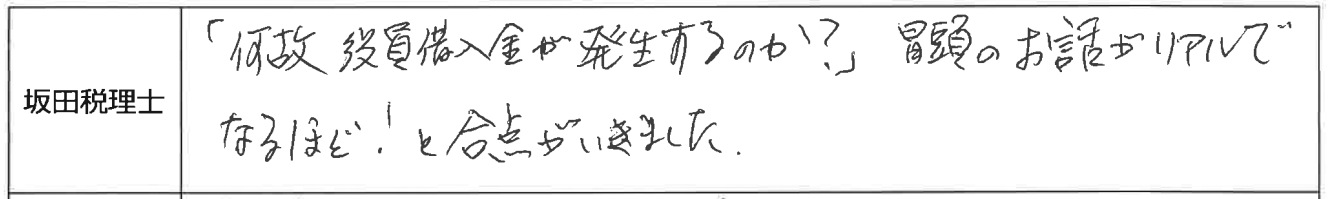 坂田税理士
「何故役員借入金が発生するのか?」冒頭のお話がリアルで
なるほど!と合点がいきました.